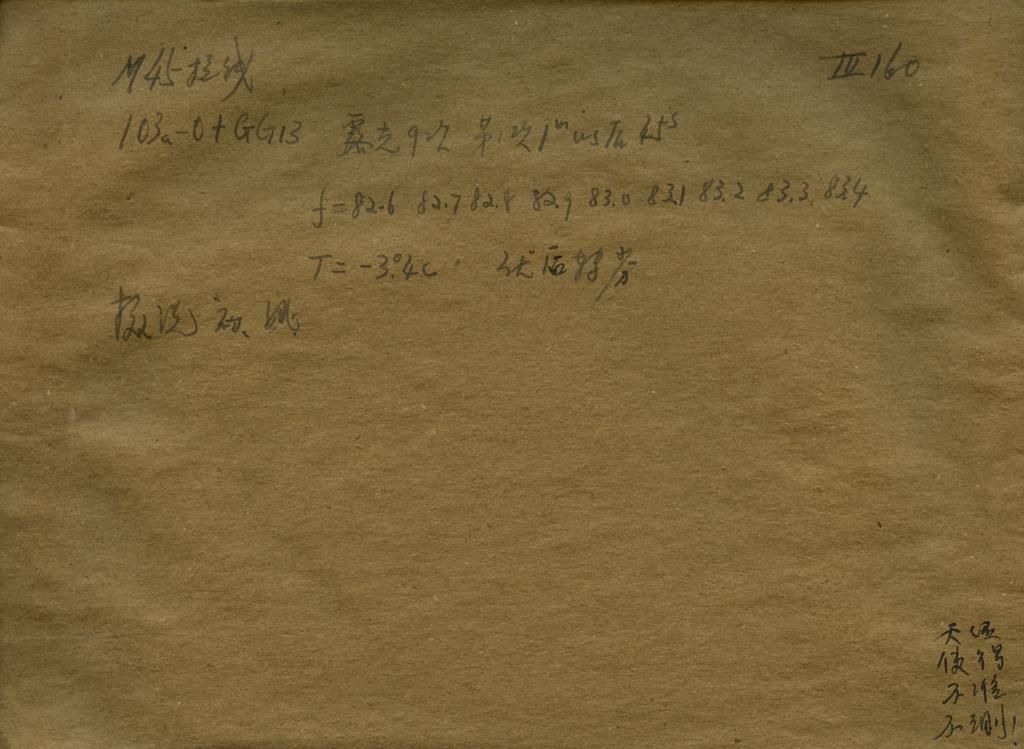 M45 拉线
III 160
103a-O+GG13 露光9次 第1次1ᵐ 以后45ˢ
f=82.6 82.7 82.8 82.9 83.0 83.1 83.2 83.3 83.4
T=-3°.4C
摄 沈 初
天
使 得
不 准
不 测!